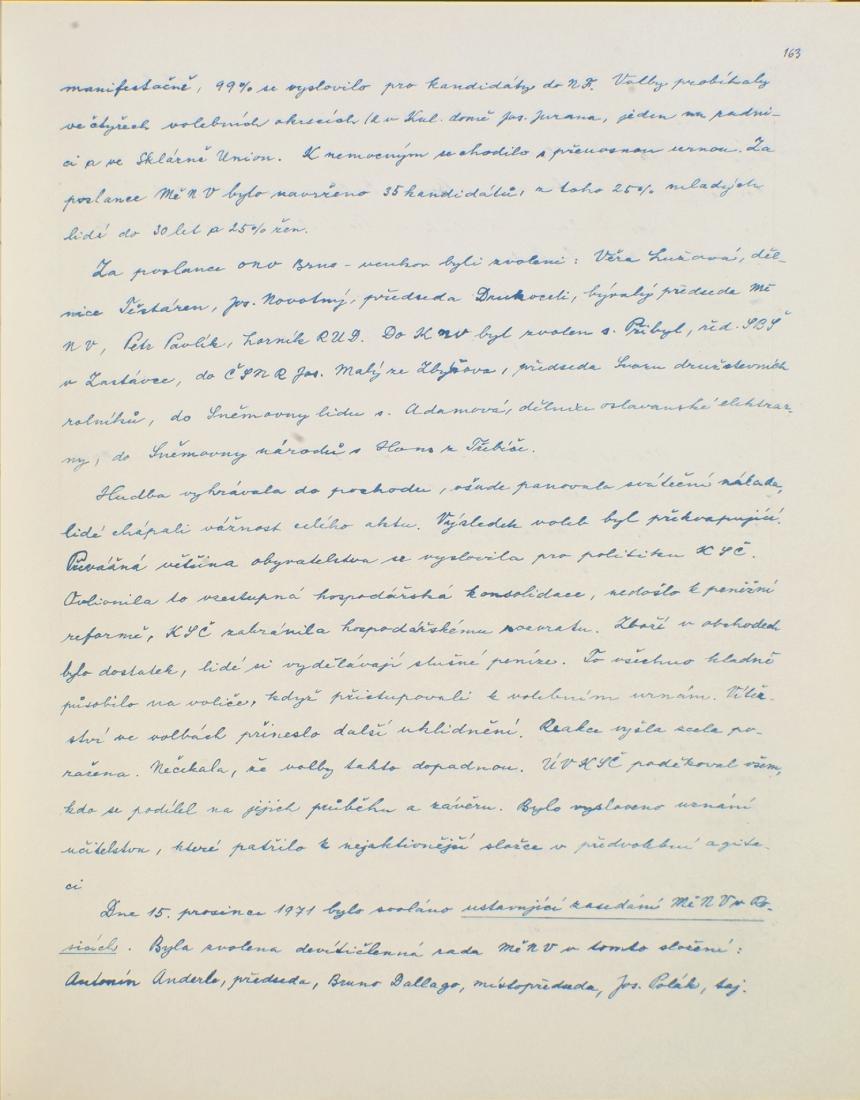 163
manifestačně, 99% se vyslovilo pro kandidáty do N.F. Volby probíhaly
ve čtyřech volebních okrscích (2 v Kul. domě Jos. Jurana, jeden na radni-
ci a ve Sklárně Union. K nemocným se chodilo s přenosnou urnou. Za
poslance MěNV bylo navrženo 35 kandidátů, z toho 25% mladých
lidí do 30 let a 25% žen.
Za poslance ONV Brno-venkov byli zvoleni: Věra Lužová, děl-
nice Těstáren, Jos. Novotný, předseda Drukoceli, bývalý předseda Mě
NV, Petr Pavlík, horník RUD. Do KNV byl zvolen s. Přibyl, řed. SBŠ
v Zastávce, do ČSNR Jos. Malý ze Zbýšova, předseda Svazu družstevních
rolníků, do Sněmovny lidu s. Adamová, dělnice oslavanské elektrár-
ny, do Sněmovny národů s Hons z Třebíče.
Hudba vyhrávala do pochodu, všude panovala sváteční nálada,
lidé chápali vážnost celého aktu. Výsledek voleb byl překvapující.
Převážná většina obyvatelstva se vyslovila pro politiku KSČ.
Ovlivnila to vzestupná hospodářská konsolidace, nedošlo k peněžní
reformě, KSČ zabránila hospodářskému rozvratu. Zboží v obchodech
bylo dostatek, lidé si vydělávají slušné peníze. To všechno kladně
působilo na voliče, když přistupovali k volebním urnám. Vítěz-
ství ve volbách přineslo další uklidnění. Reakce vyšla zcela po-
ražena. Nečekala, že volby takto dopadnou. ÚV KSČ poděkoval všem,
kdo se podílel na jejich průběhu a závěru. Bylo vysloveno uznání
učitelstvu, které patřilo k nejaktivnější složce v předvolební agita-
ci
Dne 15. prosince 1971 bylo svoláno ustavující zasedání MěNV v Ro-
sicích. Byla zvolena devítičlenná rada MěNV v tomto složení:
Antonín Anderle, předseda, Bruno Dallago, místopředseda, Jos. Polák, taj.